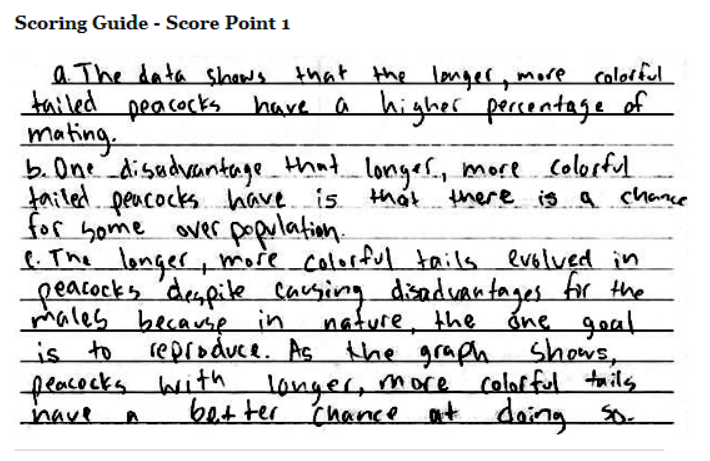 Scoring Guide - Score Point 1
a. The data shows that the longer, more colorful
tailed peacocks have a higher percentage of
mating.
b. One disadvantage that longer, more colorful
tailed peacocks have is that there is a chance
for some over population.
c. The longer, more colorful tails evolved in
peacocks despite causing disadvantages for the
males because in nature, the one goal
is to reproduce. As the graph shows,
peacocks with longer, more colorful tails
have a better chance at doing so.